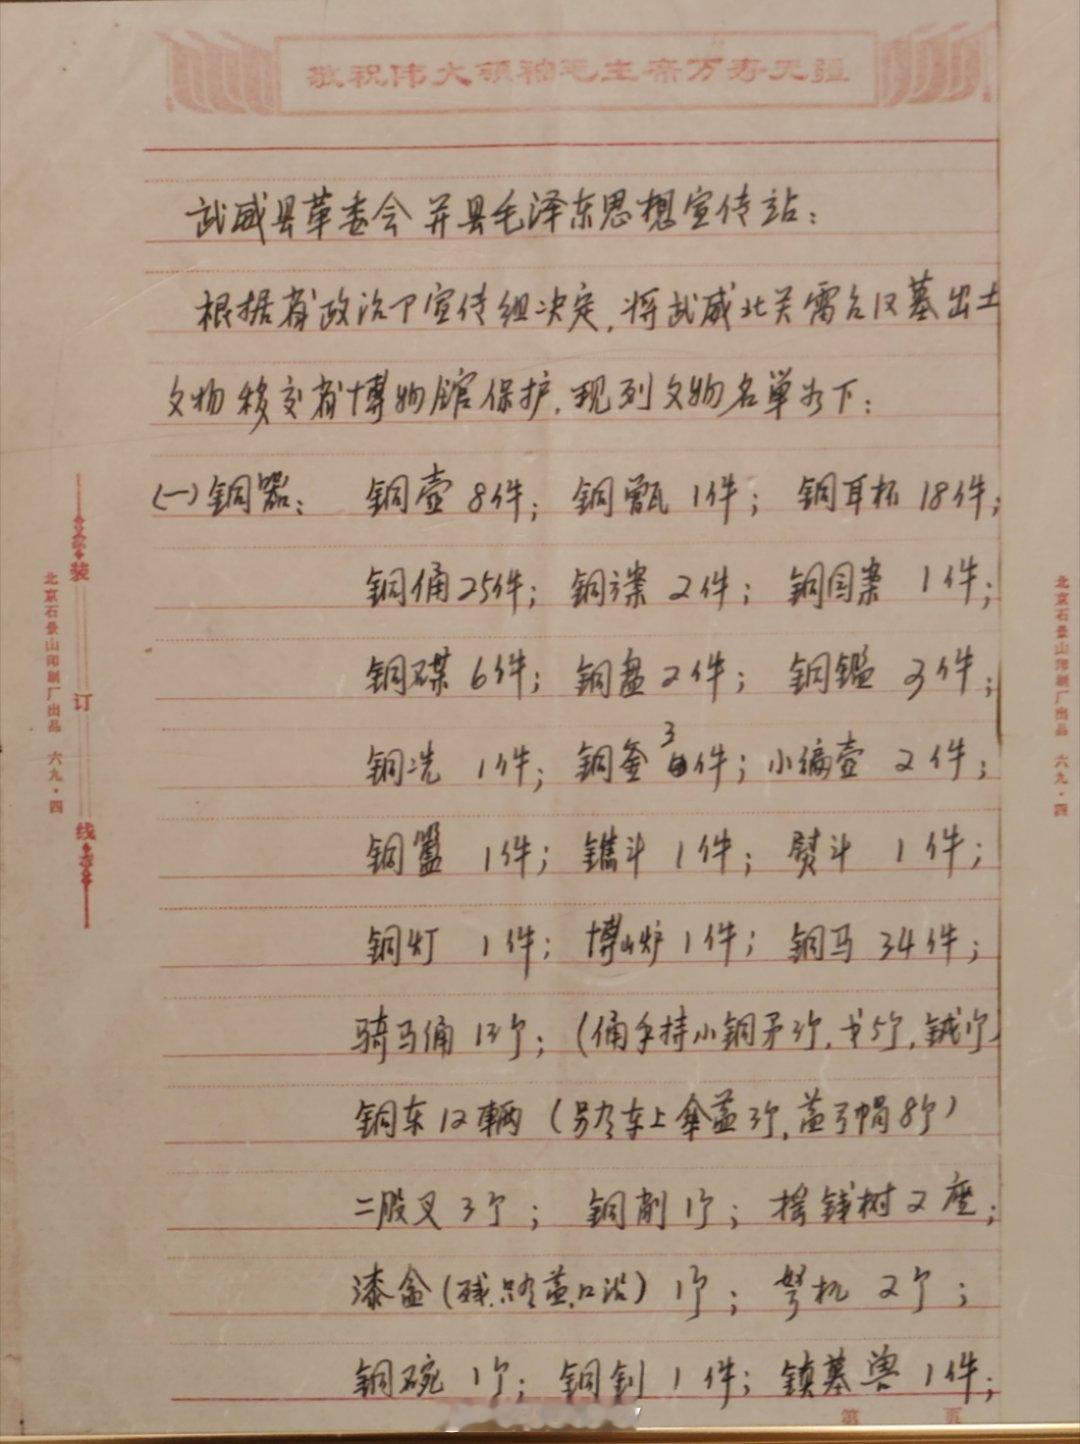 敬祝伟大领袖毛主席万寿无疆
武威县革委会并县毛泽东思想宣传站：
根据省政治下宣传组决定，将武威北关雷台汉墓出土
文物移交省博物馆保护，现列文物名单如下：
(一)铜器： 铜壶8件； 铜甑1件； 铜耳杯18件；
铜俑25件； 铜案2件； 铜圆案 1件；
铜碟6件； 铜盘2件； 铜鎾 3件；
铜洗 1件； 铜釜3件； 小扁壶 2件；
铜簋 1件； 鐎斗 1件； 熨斗 1件；
铜灯 1件； 博山炉1件； 铜马 34件；
骑马俑13个；（俑手持小铜矛3个，戈5个，钺1个
铜车12辆（另有车上伞盖3个，盖弓帽8个）
二股叉3个； 铜削1个； 摇钱树2座；
漆盒（残，只有盖，口沿）1个； 弩机 2个；
铜碗1个； 铜钊1件； 镇墓兽1件；
装
订
线
北京石景山印刷厂出品 六九·四
北京石景山印刷厂出品 六九·四
第 页